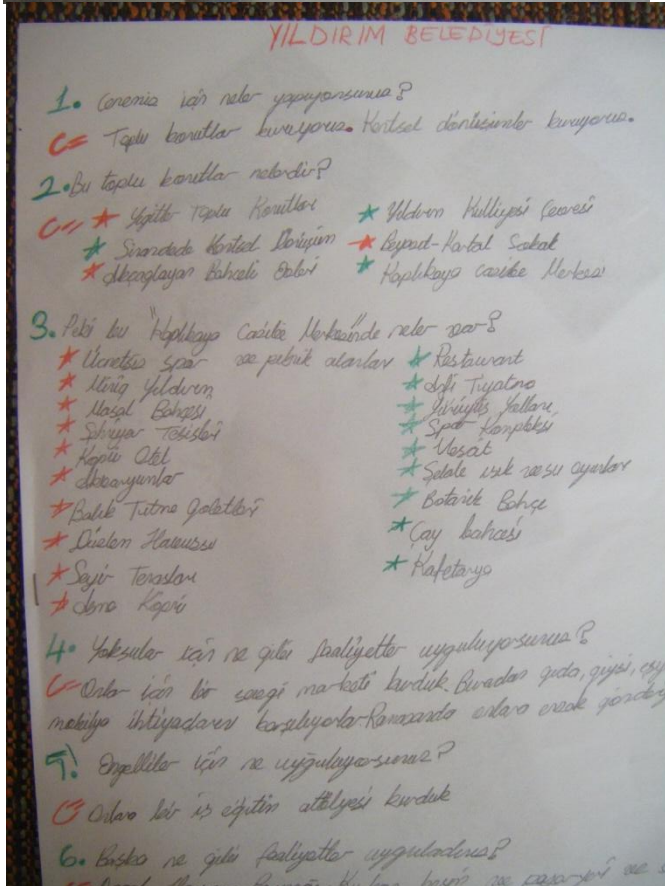 YILDIRIM BELEDİYESİ
1. Çevremiz için neler yapıyorsunuz?
C= Toplu konutlar kuruyoruz. Kentsel dönüşümler kuruyoruz.
2. Bu toplu konutlar nelerdir?
C= * Yiğitler Toplu Konutları
* Sinandede Kentsel Dönüşüm
* Akçağlayan Bahçeli Evleri
* Yıldırım Külliyesi Çevresi
* Beyazıd-Kartal Sokak
* Kaplıkaya Cazibe Merkezi
3. Peki bu "Kaplıkaya Cazibe Merkezi"nde neler var?
* Ücretsiz spor ve piknik alanları
* Miniq Yıldırım
* Masal Bahçesi
* Tesisleri
* Köprü Otel
* Balık Tutma Göletleri
* Düden Havuzu
* Seyir Terasları
* Asma Köprü
* Restaurant
* Anfi Tiyatro
* Yürüyüş Yolları
* Spor Kompleksi
* Mescit
* Şelale ışık ve su oyunları
* Botanik Bahçe
* Çay bahçesi
* Kafetarya
4. Yoksullar için ne gibi faaliyetler uyguluyorsunuz?
C= Onlar için bir sevgi marketi kurduk. Buradan gıda, giysi,
mobilya ihtiyaçlarını karşılıyorlar. Ramazanda onlara erzak
5. Engelliler için ne uyguluyorsunuz?
C= Onlara bir iş eğitim atölyesi kurduk
6. Başka ne gibi faaliyetler uyguladınız?